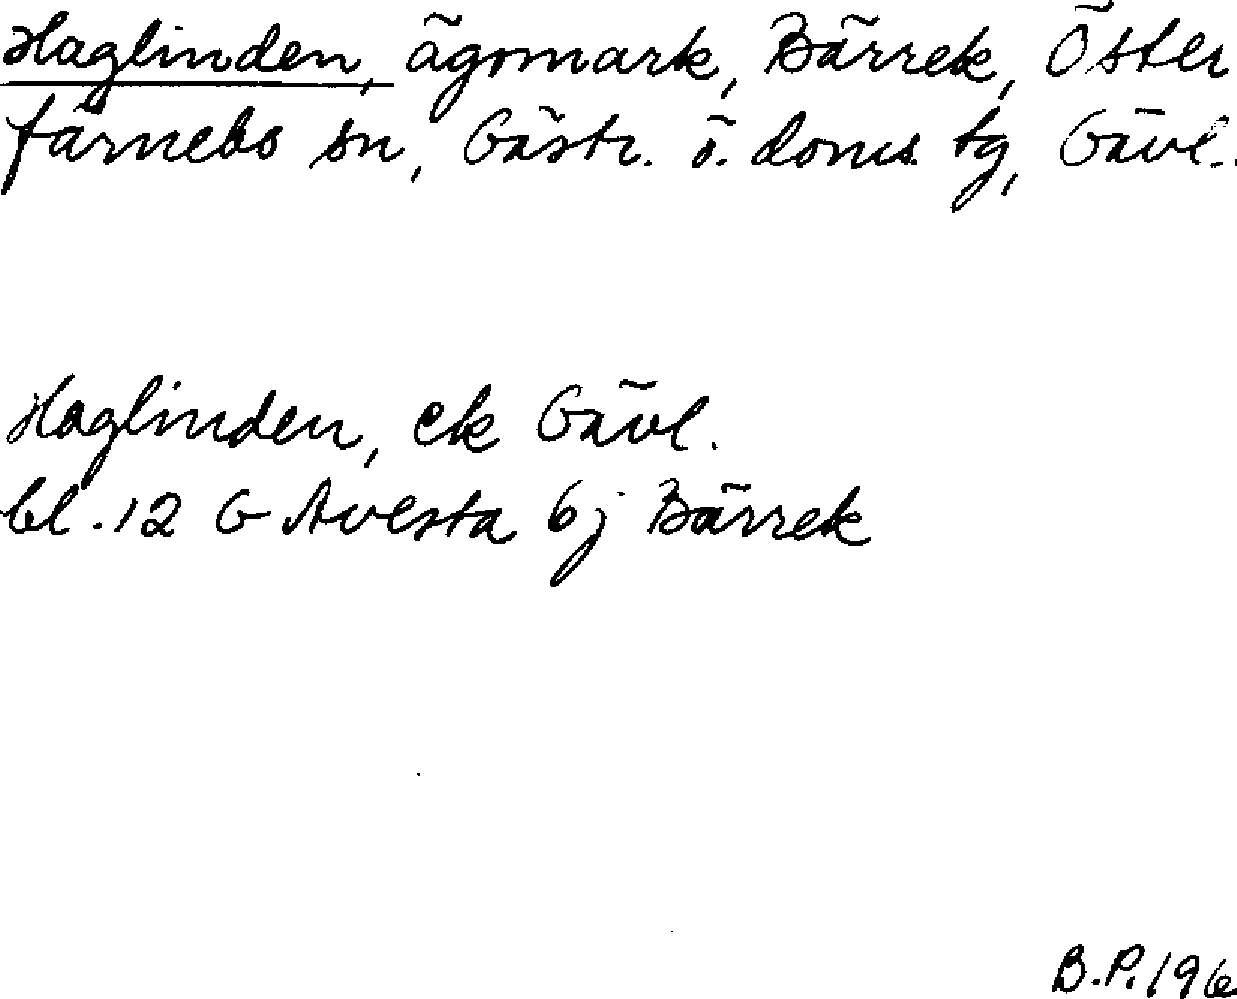 Haglinden, ägomark, Bärrek, Öster
färnebo sn, Gästr. ö. doms. tg, Gävl.
Haglinden, ek Gävl.
bl. 12 G Avesta 6j Bärrek
B.P. 196